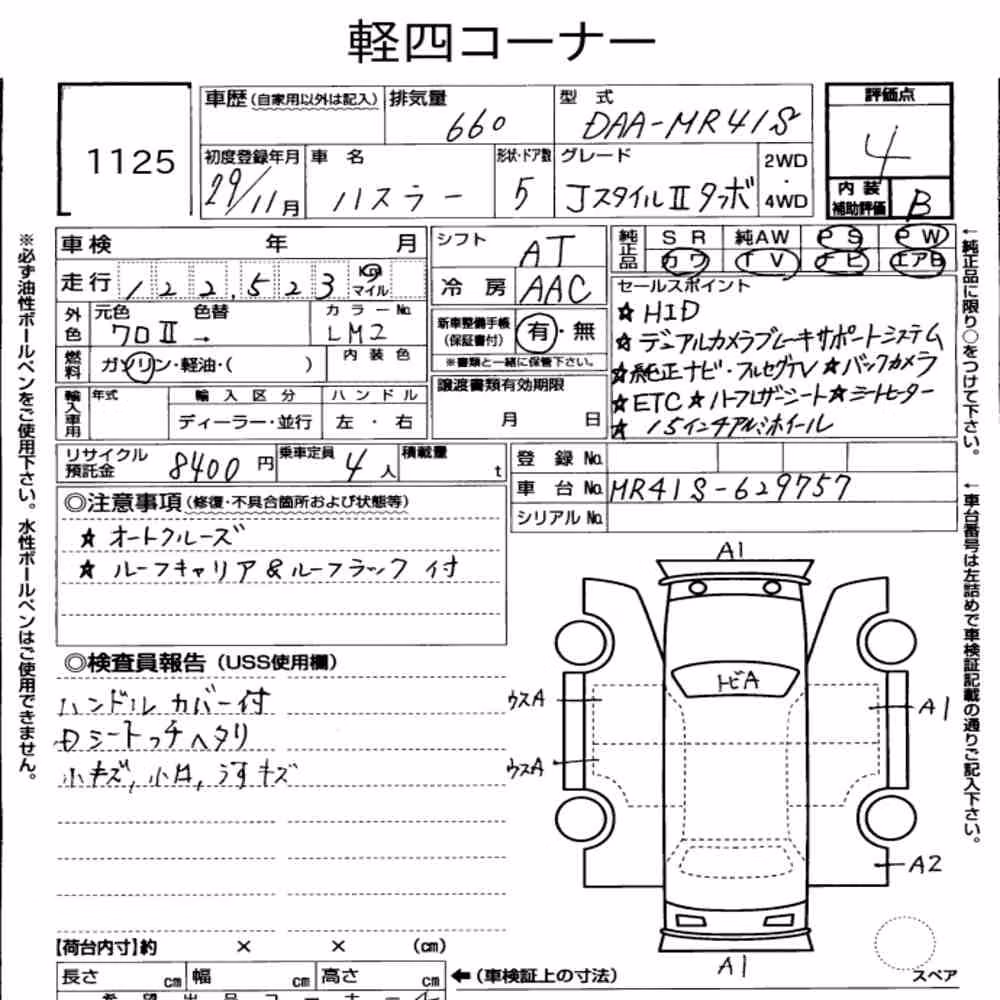 軽四コーナー
1125
車歴(自家用以外は記入) 排気量 660 型式 DAA-MR41S 評価点 4
初度登録年月 29/11月 車名 ハスラー 形状・ドア数 5 グレード JスタイルⅡターボ 2WD・4WD
内装補助評価 B
車検 年 月 シフト AT 純正品 SR 純AW PS PW
カワ TV ナビ エアB
走行 122,523 Km マイル 冷房 AAC
セールスポイント
外色 元色 クロⅡ 色替 → カラーNo. LM2
☆HID
☆デュアルカメラブレーキサポートシステム
新車整備手帳(保証書付) 有・無
※書類と一緒に保管下さい。
☆純正ナビ・フルセグTV☆バックカメラ
燃料 ガソリン・軽油・( ) 内装色
譲渡書類有効期限
月 日
☆ETC☆ハーフレザーシート☆シートヒーター
☆15インチアルミホイール
輸入車用 年式 輸入区分 ハンドル
ディーラー・並行 左・右
リサイクル預託金 8400円 乗車定員 4人 積載量 t
登録No.
車台No. MR41S-629757
シリアルNo.
◎注意事項(修復・不具合箇所および状態等)
☆オートクルーズ
☆ルーフキャリア&ルーフラック付
◎検査員報告(USS使用欄)
ハンドルカバー付
Dシートっチヘタリ
小キズ,小凹,うすキズ
A1
トビA
ウスA
A1
ウスA
A2
A1
スペア
【荷台内寸】約 × × (cm)
長さ cm 幅 cm 高さ cm ←(車検証上の寸法)
希望出品コーナー
※必ず油性ボールペンをご使用下さい。水性ボールペンはご使用できません。
←純正品に限り○をつけて下さい。
←車台番号は左詰めで車検証記載の通りご記入下さい。